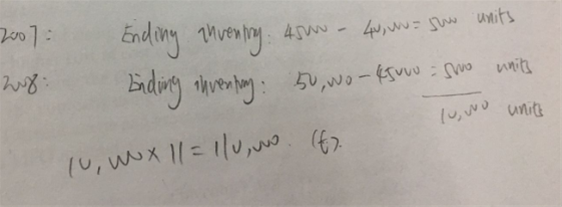 2007: Ending inventory: 45000 - 40,000 = 5000 units
2008: Ending inventory: 50,000 - 45000 = 5000 units
10,000 units
10,000 x 11 = 110,000. (f).